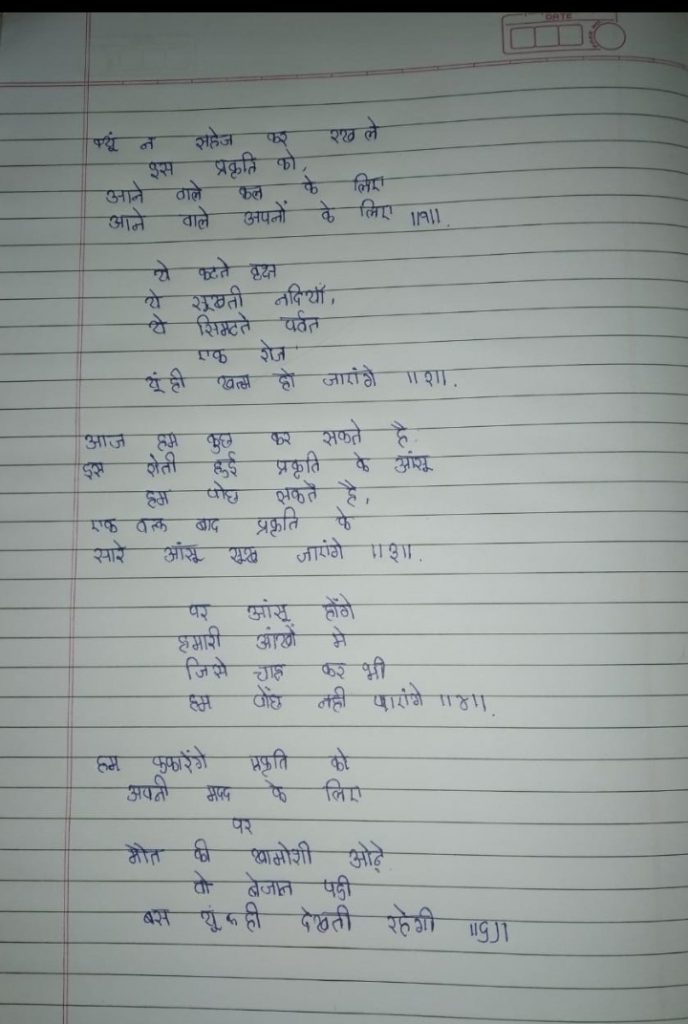 DATE
क्यूं न सहेज कर रख ले
इस प्रकृति को,
आने वाले कल के लिए
आने वाले अपनों के लिए ॥१॥.
ये कटते वृक्ष
ये सूखती नदियाँ,
ये सिमटते पर्वत
एक रोज
यूं ही खत्म हो जाएंगे ॥२॥.
आज हम कुछ कर सकते है.
इस रोती हुई प्रकृति के आंसू
हम पोछ सकते है,
एक वक्त बाद प्रकृति के
सारे आंसू सूख जाएंगे ॥३॥.
पर आंसू होंगे
हमारी आंखों मे
जिसे चाह कर भी
हम पोंछ नही पाएंगे ॥४॥.
हम पुकारेंगे प्रकृति को
अपनी मदद के लिए
पर
मौत की खामोशी ओढ़े
वो बेजान पड़ी
बस यूं ही देखती रहेगी ॥५॥